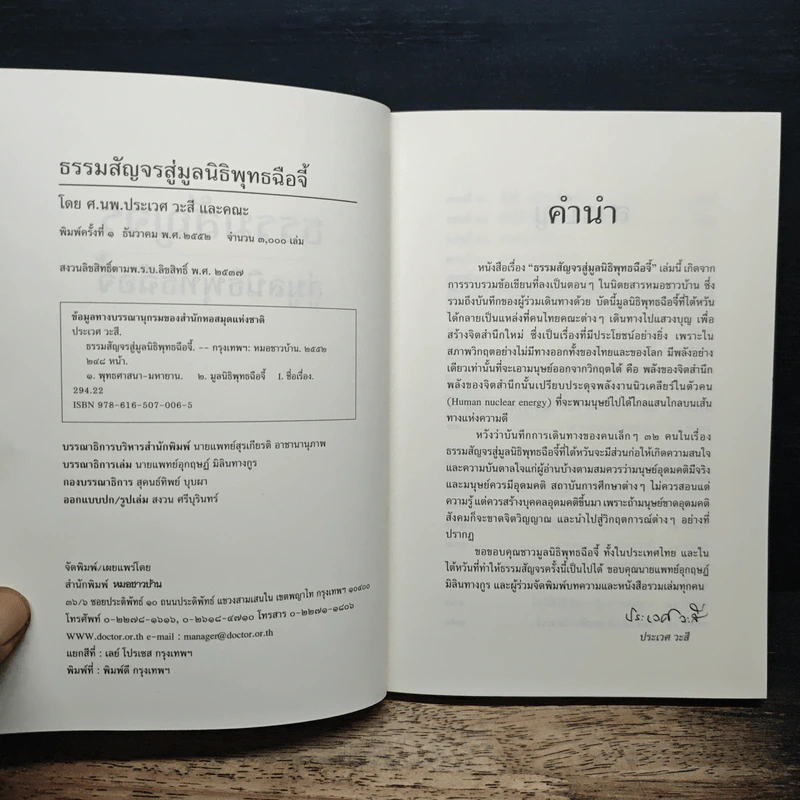 ธรรมสัญจรสู่มูลนิธิพุทธฉือจี้
โดย ศ.นพ.ประเวศ วะสี และคณะ
พิมพ์ครั้งที่ ๑ ธันวาคม พ.ศ. ๒๕๕๒ จำนวน ๓,๐๐๐ เล่ม
สงวนลิขสิทธิ์ตามพ.ร.บ.ลิขสิทธิ์ พ.ศ. ๒๕๓๗
ข้อมูลทางบรรณานุกรมของสำนักหอสมุดแห่งชาติ
ประเวศ วะสี.
ธรรมสัญจรสู่มูลนิธิพุทธฉือจี้. -- กรุงเทพฯ: หมอชาวบ้าน. ๒๕๕๒
๒๔๘ หน้า.
๑. พุทธศาสนา-มหายาน. ๒. มูลนิธิพุทธฉือจี้ I. ชื่อเรื่อง.
294.22
ISBN 978-616-507-006-5
บรรณาธิการบริหารสำนักพิมพ์ นายแพทย์สุรเกียรติ อาชานานุภาพ
บรรณาธิการเล่ม นายแพทย์อุกฤษฏ์ มิลินทางกูร
กองบรรณาธิการ สุคนธ์ทิพย์ บุบผา
ออกแบบปก/รูปเล่ม สงวน ศรีบุรินทร์
จัดพิมพ์/เผยแพร่โดย
สำนักพิมพ์ หมอชาวบ้าน
๓๖/๖ ซอยประดิพัทธ์ ๑๐ ถนนประดิพัทธ์ แขวงสามเสนใน เขตพญาไท กรุงเทพฯ ๑๐๔๐๐
โทรศัพท์ ๐-๒๒๗๘-๑๖๑๖, ๐-๒๖๑๘-๔๗๑๐ โทรสาร ๐-๒๒๗๑-๑๘๐๖
WWW.doctor.or.th e-mail : manager@doctor.or.th
แยกสีที่ : เลย์ โปรเซส กรุงเทพฯ
พิมพ์ที่ : พิมพ์ดี กรุงเทพฯ
คำนำ
หนังสือเรื่อง "ธรรมสัญจรสู่มูลนิธิพุทธฉือจี้" เล่มนี้ เกิดจาก
การรวบรวมข้อเขียนที่ลงเป็นตอนๆ ในนิตยสารหมอชาวบ้าน ซึ่ง
รวมถึงบันทึกของผู้ร่วมเดินทางด้วย บัดนี้มูลนิธิพุทธฉือจี้ที่ไต้หวัน
ได้กลายเป็นแหล่งที่คนไทยคณะต่างๆ เดินทางไปแสวงบุญ เพื่อ
สร้างจิตสำนึกใหม่ ซึ่งเป็นเรื่องที่มีประโยชน์อย่างยิ่ง เพราะใน
สภาพวิกฤตอย่างไม่มีทางออกทั้งของไทยและของโลก มีพลังอย่าง
เดียวเท่านั้นที่จะเอามนุษย์ออกจากวิกฤตได้ คือ พลังของจิตสำนึก
พลังของจิตสำนึกนั้นเปรียบประดุจพลังงานนิวเคลียร์ในตัวคน
(Human nuclear energy) ที่จะพามนุษย์ไปได้ไกลแสนไกลบนเส้น
ทางแห่งความดี
หวังว่าบันทึกการเดินทางของคนเล็กๆ ๓๒ คนในเรื่อง
ธรรมสัญจรสู่มูลนิธิพุทธฉือจี้ที่ไต้หวันจะมีส่วนก่อให้เกิดความสนใจ
และความบันดาลใจแก่ผู้อ่านบ้างตามสมควรว่ามนุษย์อุดมคติมีจริง
และมนุษย์ควรมีอุดมคติ สถาบันการศึกษาต่างๆ ไม่ควรสอนแต่
ความรู้ แต่ควรสร้างบุคคลอุดมคติขึ้นมา เพราะถ้ามนุษย์ขาดอุดมคติ
สังคมก็จะขาดจิตวิญญาณ และนำไปสู่วิกฤตการณ์ต่างๆ อย่างที่
ปรากฏ
ขอขอบคุณชาวมูลนิธิพุทธฉือจี้ ทั้งในประเทศไทย และใน
ไต้หวันที่ทำให้ธรรมสัญจรครั้งนี้เป็นไปได้ ขอบคุณนายแพทย์อุกฤษฏ์
มิลินทางกูร และผู้ร่วมจัดพิมพ์บทความและหนังสือรวมเล่มทุกคน
ประเวศ วะสี
ประเวศ วะสี